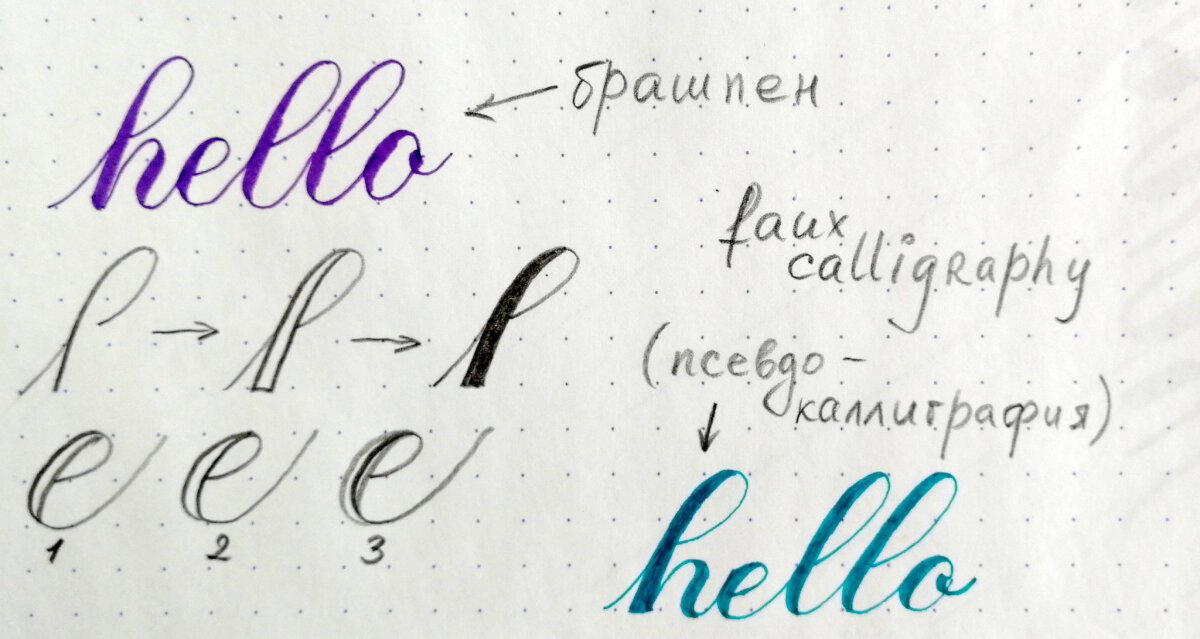 hello
брашпен
faux
calligraphy
(псевдо-
каллиграфия)
e e e
1 2 3
hello